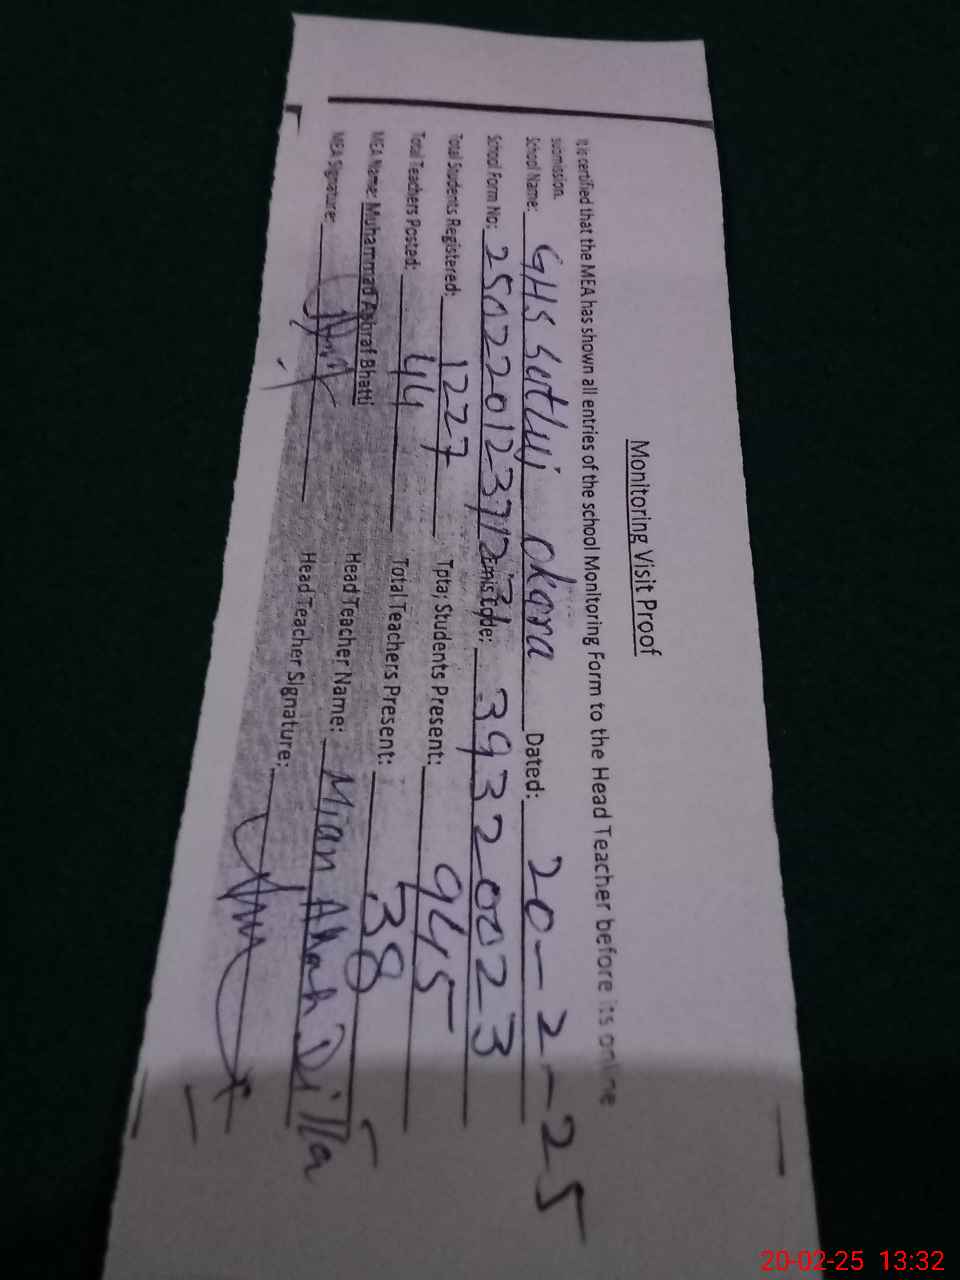 Monitoring Visit Proof
It is certified that the MEA has shown all entries of the school Monitoring Form to the Head Teacher before its online
submission.
School Name: GHS Sutluj Okara Dated: 20-2-25
School Form No: Emis Code: 39320023
Total Students Registered: 1227 Tpta; Students Present: 945
Total Teachers Posted: 44 Total Teachers Present: 38
MEA Name: Muhammad Ashraf Bhatti Head Teacher Name: Mian Allah Ditta
MEA Signature: Head Teacher Signature:
20-02-25 13:32